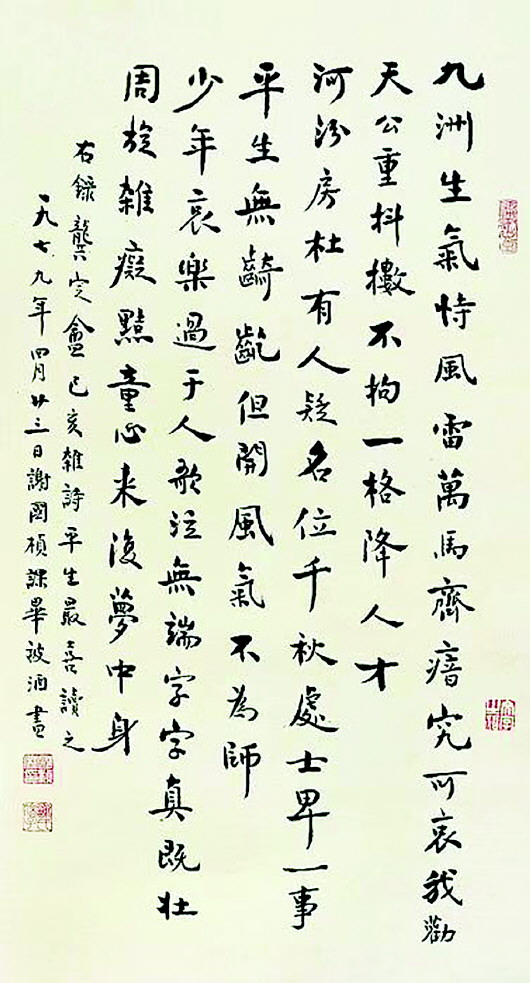 九洲生氣恃風雷萬馬齊瘖究可哀我勸
天公重抖擻不拘一格降人才
河汾房杜有人疑名位千秋處士卑一事
平生無齮齕但開風氣不為師
少年哀樂過于人歌泣無端字字真既壯
周旋雜癡黠童心來復夢中身
右録龔定盦己亥雜詩平生最喜讀之
一九七九年四月廿三日謝國楨課畢被酒書